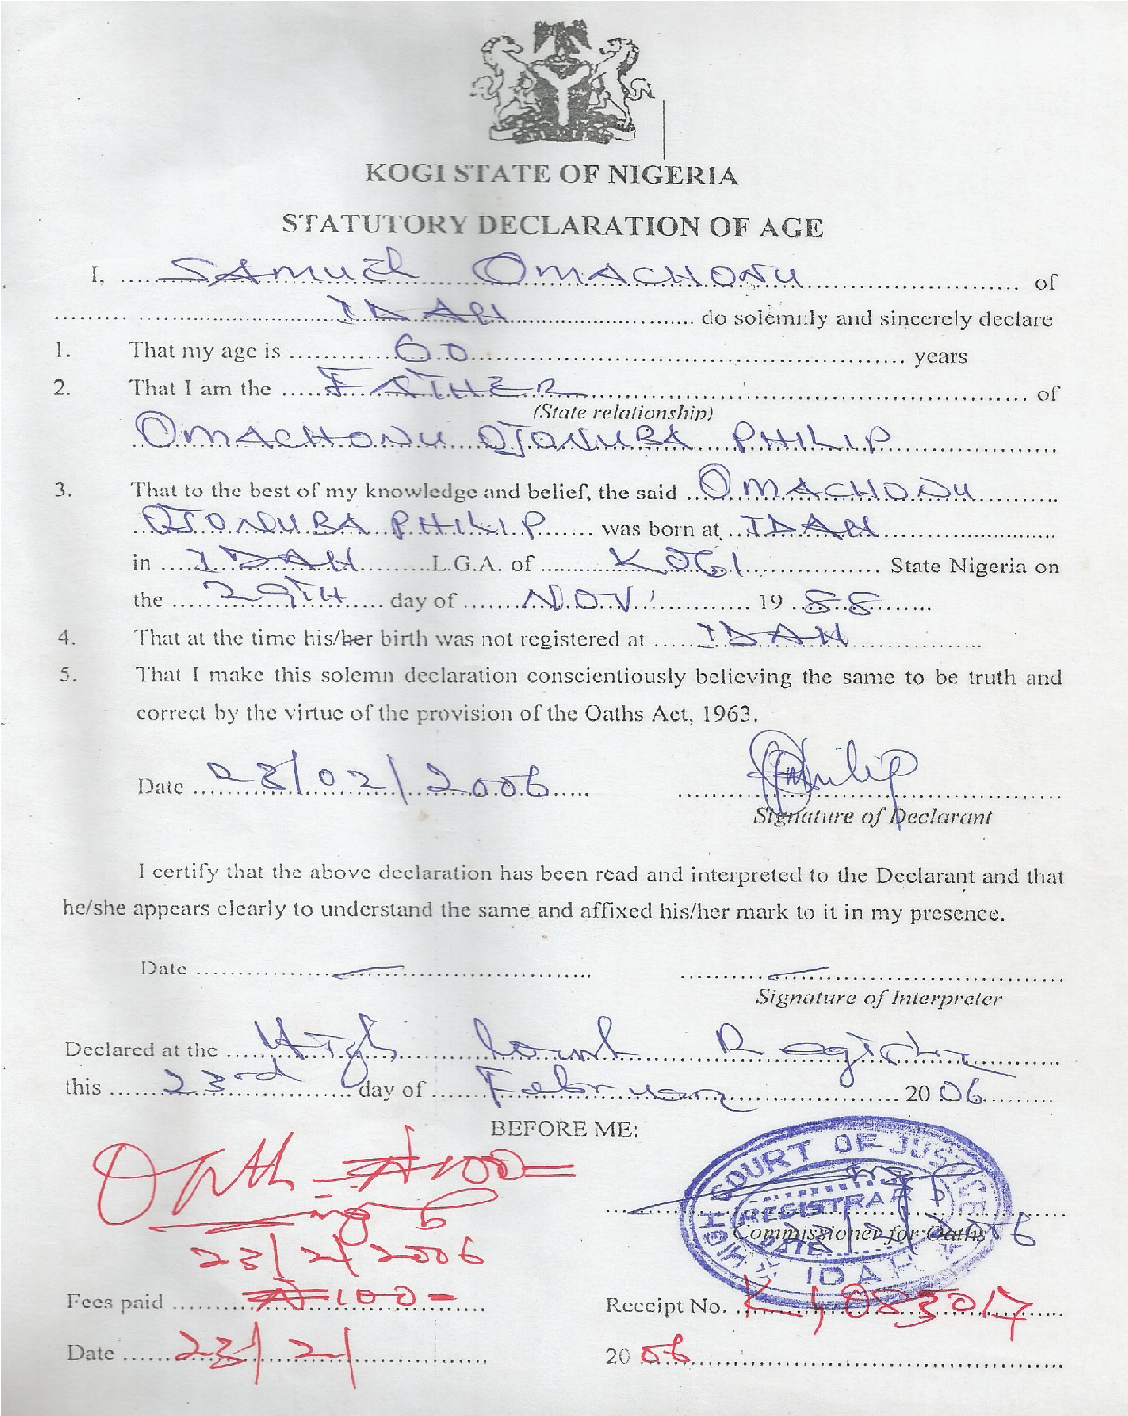 KOGI STATE OF NIGERIA
STATUTORY DECLARATION OF AGE
I, SAMUEL OMACHONU of
IDAH do solemnly and sincerely declare
1. That my age is 60 years
2. That I am the FATHER of
(State relationship)
OMACHONU OJONUBA PHILIP
3. That to the best of my knowledge and belief, the said OMACHONU
OJONUBA PHILIP was born at IDAH
in IDAH L.G.A. of KOGI State Nigeria on
the 29TH day of NOV. 19 88
4. That at the time his/her birth was not registered at IDAH
5. That I make this solemn declaration conscientiously believing the same to be truth and
correct by the virtue of the provision of the Oaths Act, 1963.
Date 23/02/2006
Signature of Declarant
I certify that the above declaration has been read and interpreted to the Declarant and that
he/she appears clearly to understand the same and affixed his/her mark to it in my presence.
Date
Signature of Interpreter
Declared at the High Court Registry
this 23rd day of February 20 06
BEFORE ME:
HIGH COURT OF JUSTICE
REGISTRAR
DATE
IDAH
Oath ₦100=
23/2/2006
Commissioner for Oaths
Fees paid ₦100= Receipt No.
Date 23/2/ 20 06